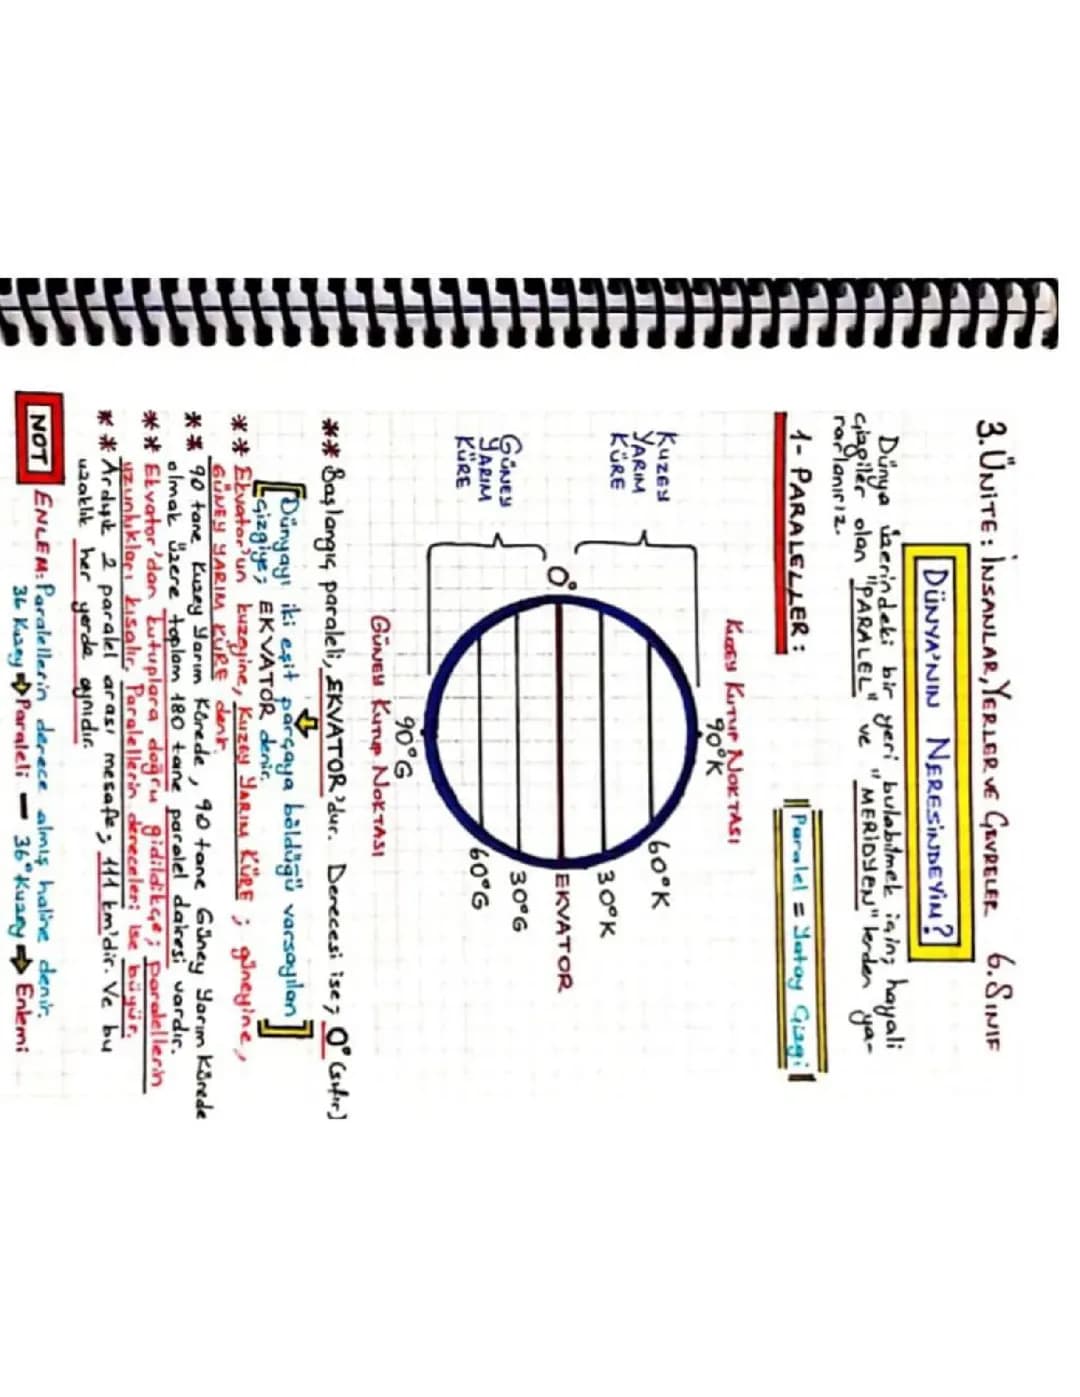 3. ÜNİTE: İNSANLAR, YERLER VE ÇEVRELER 6. SINIF
DÜNYA'NIN NERESİNDEYİM?
Dünya üzerindeki bir yeri bulabilmek için; hayali
çizgiler olan "PARALEL" ve "MERİDYEN" lerden ya-
rarlanırız.
1- PARALELLER:
Paralel = Yatay Çizgi
KUZEY KUTUP NOKTASI
90°K
KUZEY
YARIM
KÜRE
60°K
30°K
0°
EKVATOR
GÜNEY
YARIM
KÜRE
30°G
60°G
90°G
GÜNEY KUTUP NOKTASI
** Başlangıç paraleli, EKVATOR'dur. Derecesi ise; 0° (sıfır)
[Dünyayı iki eşit parçaya böldüğü varsayılan
çizgiye; EKVATOR denir.]
** Ekvator'un kuzeyine, KUZEY YARIM KÜRE; güneyine,
GÜNEY YARIM KÜRE denir.
** 90 tane Kuzey Yarım Kürede, 90 tane Güney Yarım Kürede
olmak üzere toplam 180 tane paralel dairesi vardır.
** Ekvator'dan kutuplara doğru gidildikçe; paralellerin
uzunlukları kısalır, Paralellerin dereceleri ise büyür.
** Ardışık 2 paralel arası mesafe; 111 km'dir. Ve bu
uzaklık her yerde aynıdır.
NOT ENLEM: Paralellerin derece almış haline denir.
36 Kuzey → Paraleli — 36° Kuzey → Enlemi